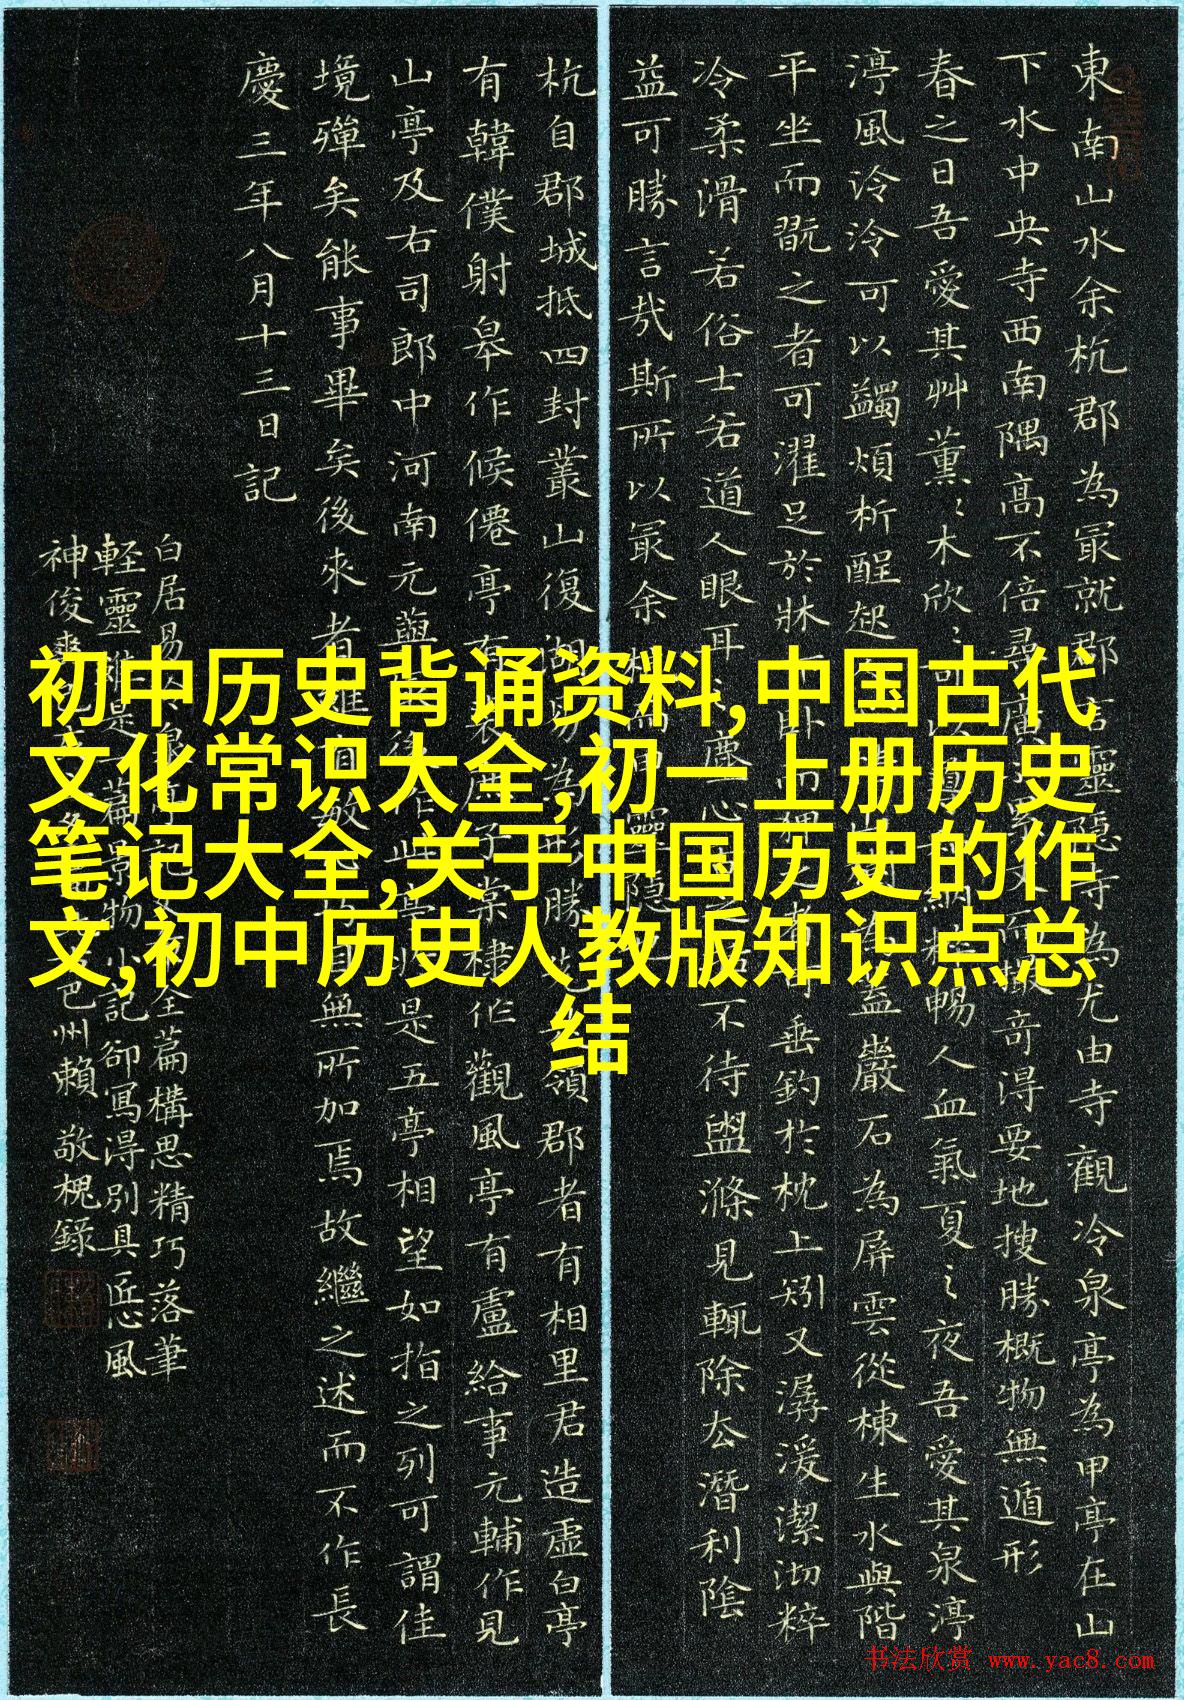 東南山水余杭郡為冣就郡言靈隱寺為尤由寺觀冷泉亭為甲亭在山
下水中央寺西南隅高不倍尋廣而撮奇得要地搜勝概物無遁形
春之日吾愛其艸薰〻木欣〻可以納粹暢人血氣夏之夜吾愛其泉渟
渟風泠泠可以蠲煩析酲起為蓋巖石為屏雲從棟生水與階
平坐而翫之者可濯足於牀下卧而狎之者可垂釣於枕上矧又潺湲潔沏粹
冷柔滑若俗士若道人眼耳之塵心不待盥滌見輒除去潛利陰
益可勝言哉斯所以冣余杭而甲靈隱也
杭自郡城抵四封叢山復湖易為形勝先是領郡者有相里君造虛白亭
有韓僕射皋作候僊亭有裴庶子棠棣作觀風亭有盧給事元輔作見
山亭及右司郎中河南元藇後作此亭於是五亭相望如指之列可謂佳
境殫矣能事畢矣後來者雖有敏目無所加焉故繼之述而不作長
慶三年八月十三日記
白居易冷泉亭記全篇構思精巧落筆
軽靈雖是一篇景物小記卻寫得別具匠心風
神俊爽巴州賴敬槐錄
初中历史背诵资料,中国古代
文化常识大全,初一上册历史
笔记大全,关于中国历史的作
文,初中历史人教版知识点总
结
书法欣赏 www.yac8.com